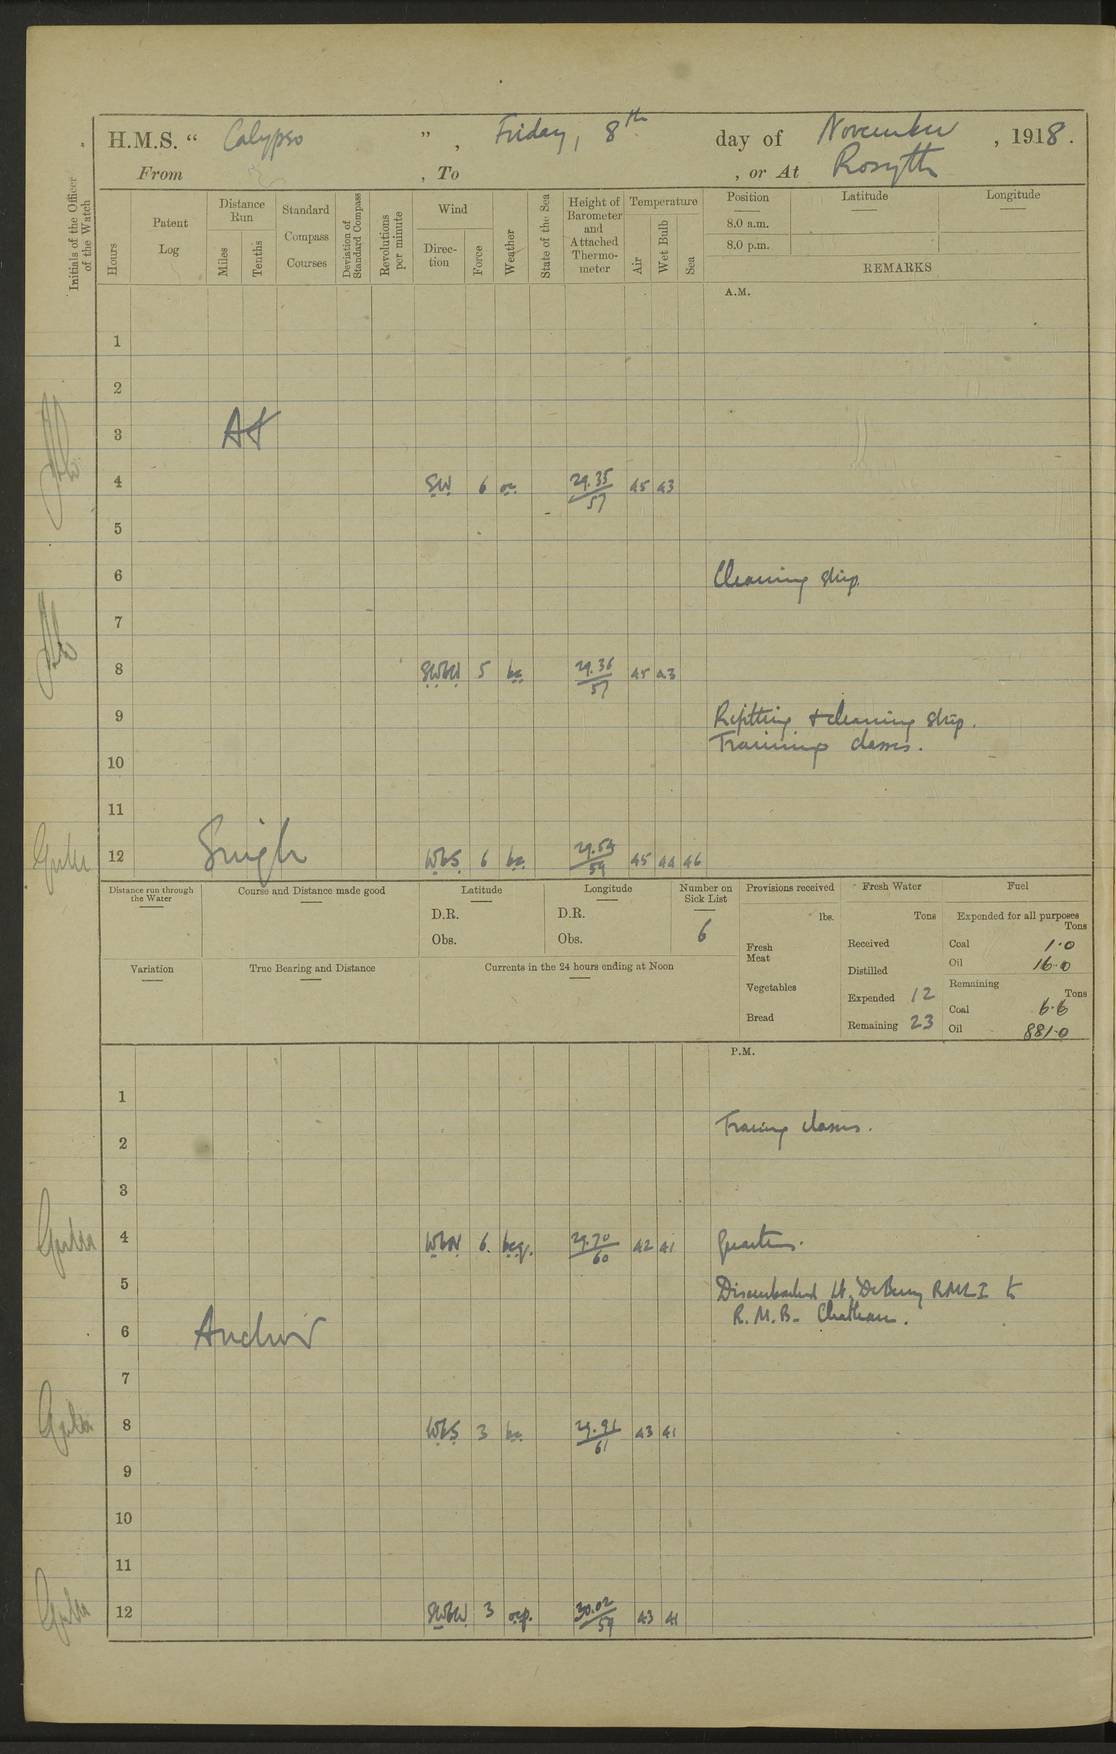 H.M.S. “ Calypso ” , Friday, 8th day of November , 1918.
From , To , or At Rosyth
Initials of the Officer of the Watch
Hours
Patent Log
Distance Run
Miles
Tenths
Standard Compass Courses
Deviation of Standard Compass
Revolutions per minute
Wind
Direc-tion
Force
Weather
State of the Sea
Height of Barometer and Attached Thermo-meter
Temperature
Air
Wet Bulb
Sea
Position Latitude Longitude
8.0 a.m.
8.0 p.m.
REMARKS
A.M.
1
2
3 At
4 SW 6 oc 29.35/57 45 43
5
6 Cleaning ship.
7
8 SWbW 5 bc 29.36/57 45 43
9 Refitting + cleaning ship.
Training classes.
10
11
12 Single WbS 6 bc 29.54/59 45 44 46
Distance run through the Water
Course and Distance made good
Latitude
D.R.
Obs.
Longitude
D.R.
Obs.
Number on Sick List
6
Provisions received
lbs.
Fresh Meat
Vegetables
Bread
Fresh Water
Tons
Received
Distilled
Expended 12
Remaining 23
Fuel
Expended for all purposes
Tons
Coal 1.0
Oil 16.0
Remaining
Tons
Coal 6.6
Oil 881.0
Variation
True Bearing and Distance
Currents in the 24 hours ending at Noon
P.M.
1
Traing classes.
2
3
4 WbN 6. bcq. 29.70/60 42 41 Quarters.
5 Disembarked Lt. RMLI to
R.M.B. Chatham.
6 Anchor
7
8 WbS 3 bc 29.91/61 43 41
9
10
11
12 SWbW 3 ocp. 30.02/59 43 41